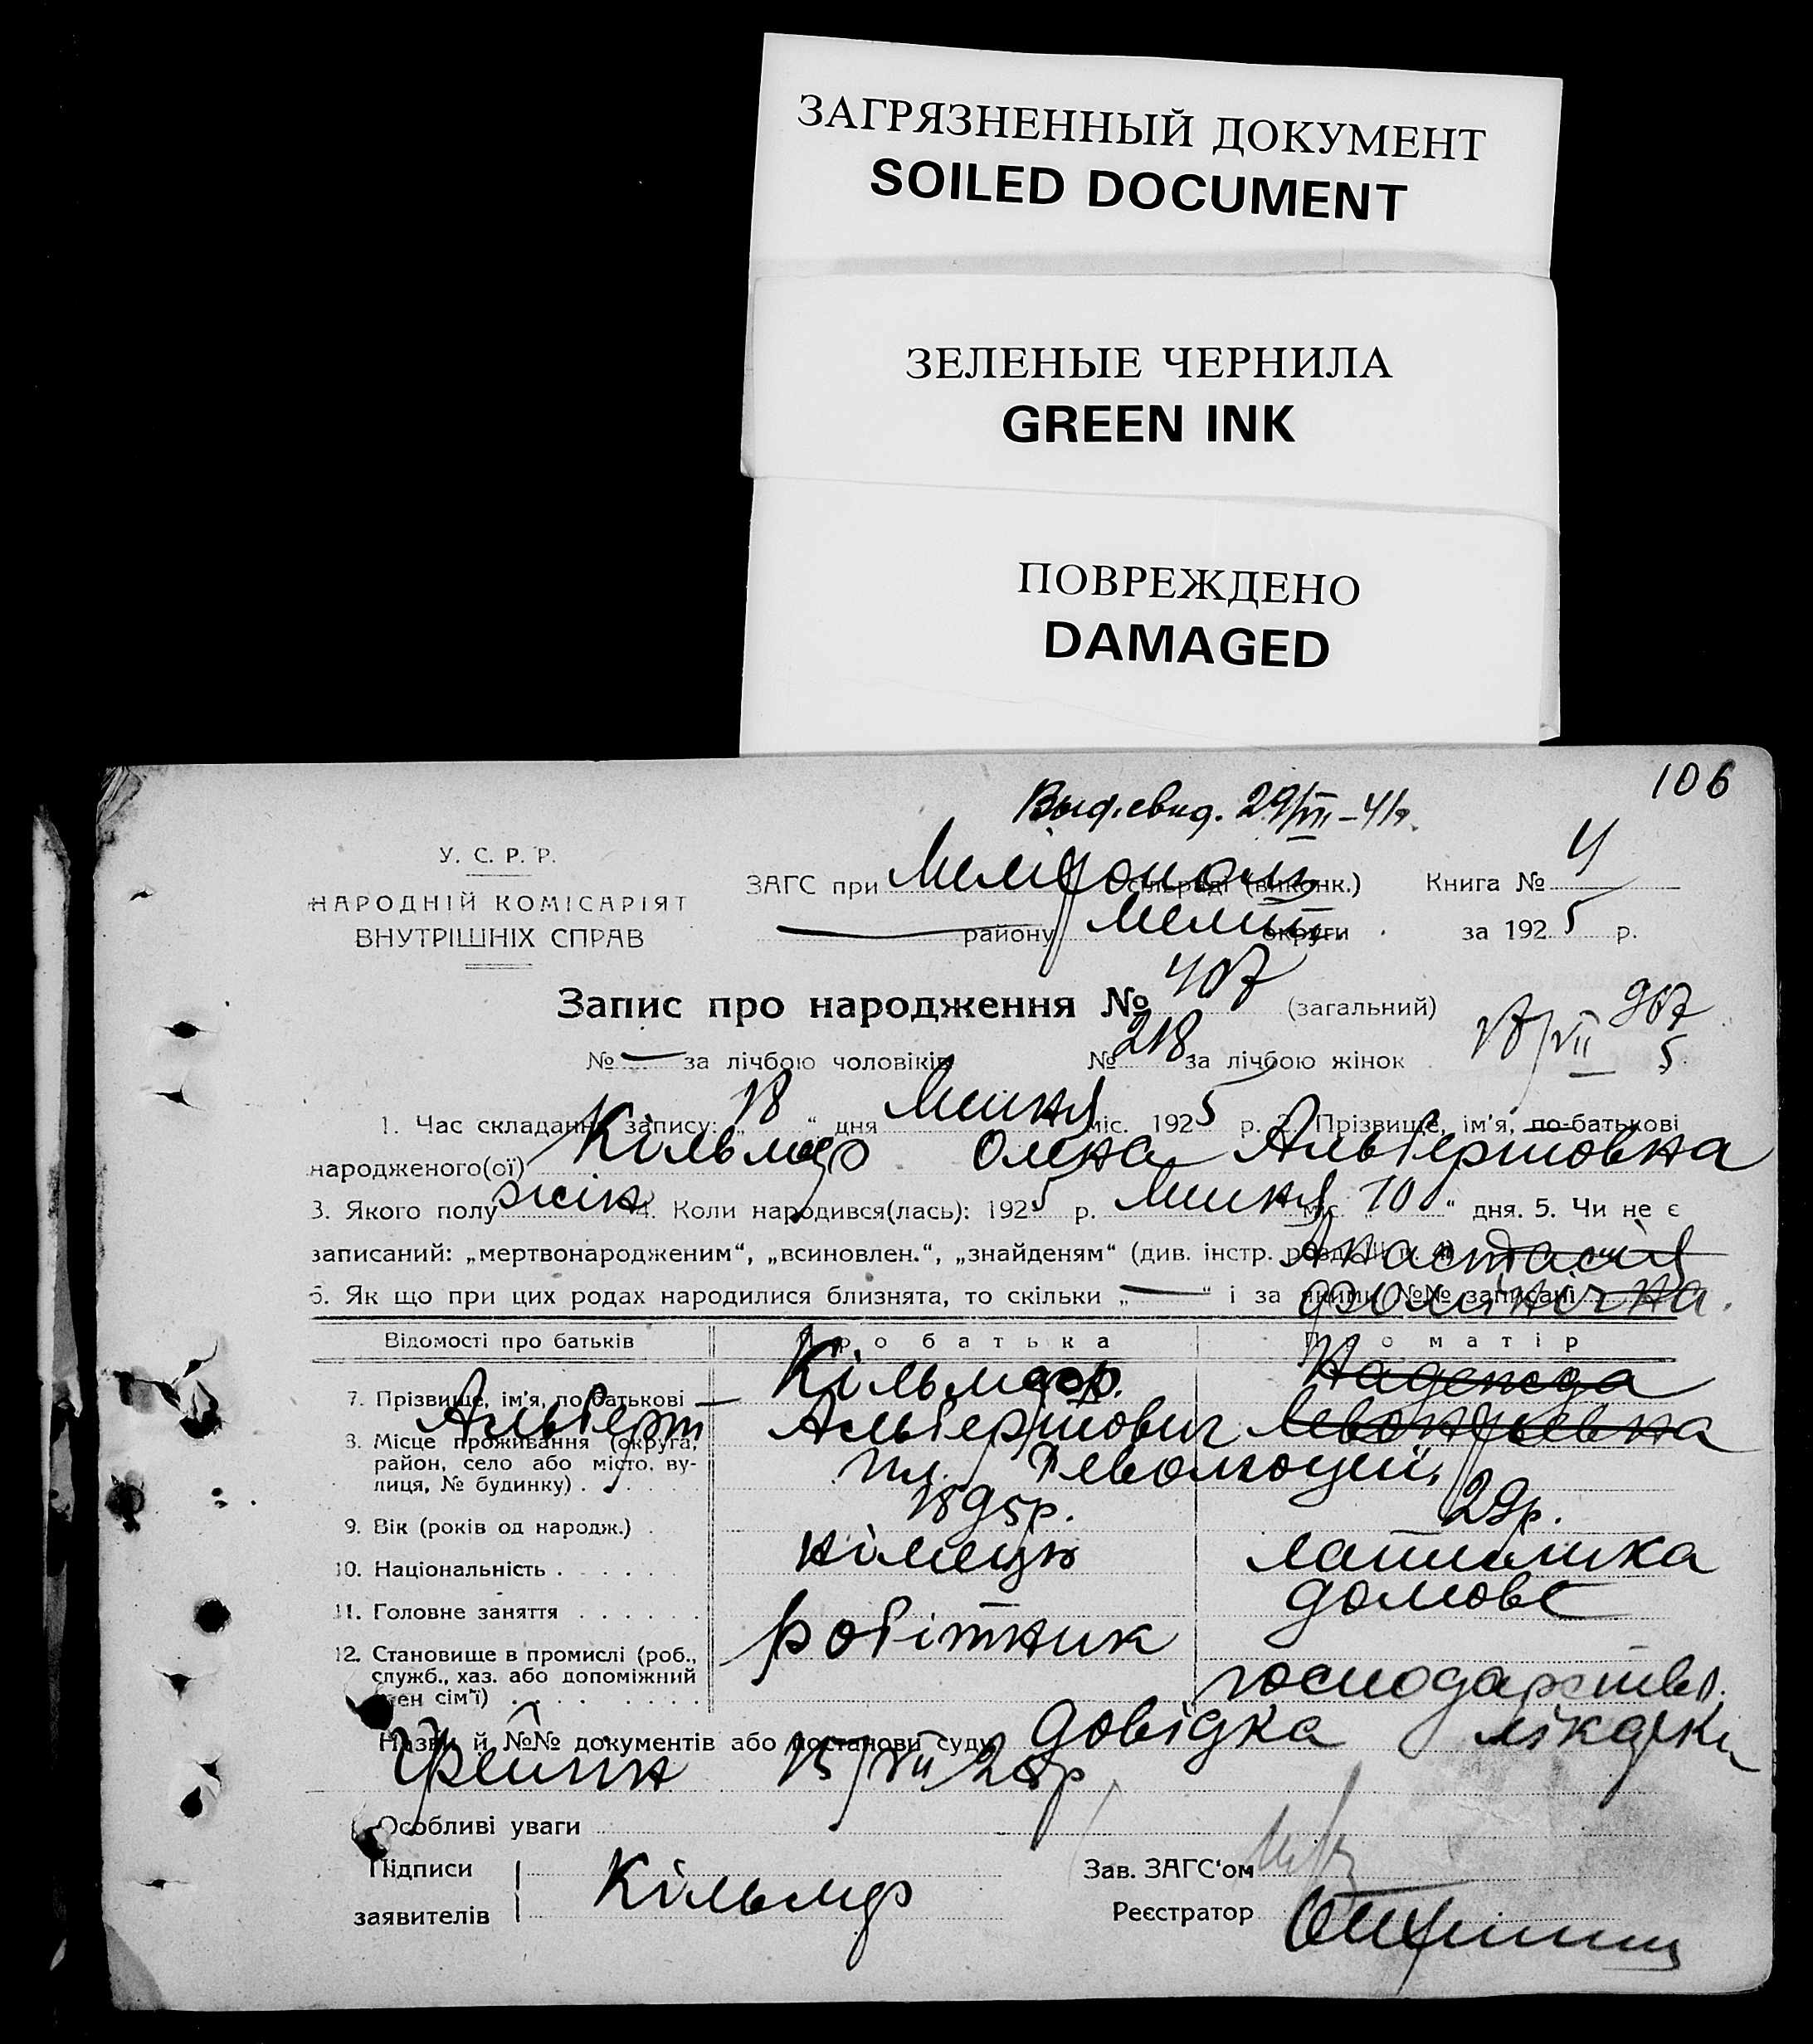 ЗАГРЯЗНЕННЫЙ ДОКУМЕНТ
SOILED DOCUMENT
ЗЕЛЕНЫЕ ЧЕРНИЛА
GREEN INK
ПОВРЕЖДЕНО
DAMAGED
106
Выд. свид. 29/VII-41 г.
У. С. Р. Р.
НАРОДНІЙ КОМІСАРІЯТ
ВНУТРІШНІХ СПРАВ
ЗАГС при Мелітополь сільраді (виконк.) Книга № 4
району Меліт. округи за 1925 р.
Запис про народження № 407 (загальний)
№ — за лічбою чоловіків № 218 за лічбою жінок
1. Час складання запису: „18“ дня Липня міс. 1925 р. 2. Прізвище, ім'я, по-батькові
народженого(ої) Олена Альбертовна
3. Якого полу жін 4. Коли народився(лась): 1925 р. Липня міс. „10“ дня. 5. Чи не є
записаний: „мертвонародженим“, „всиновлен.“, „знайденям“ (див. інстр. розд. III п. 4) Анастасія
6. Як що при цих родах народилися близнята, то скільки „—“ і за якими №№ записані
Відомості про батьків Про батька Про матір
7. Прізвище, ім'я, по-батькові Надежда
Альберт Альбертович
8. Місце проживання (округа,
район, село або місто, ву-
лиця, № будинку) пл. Революции,
9. Вік (років од народж.) 1895р. 29р.
10. Національність німець латишка
11. Головне заняття домове
12. Становище в промислі (роб.,
служб., хаз. або допоміжний
член сім'ї) робітник господарство.
Назви й №№ документів або постанови суду довідка лікарки
15/VII 25р
Особливі уваги
Підписи
заявителів
Зав. ЗАГС'ом
Реєстратор